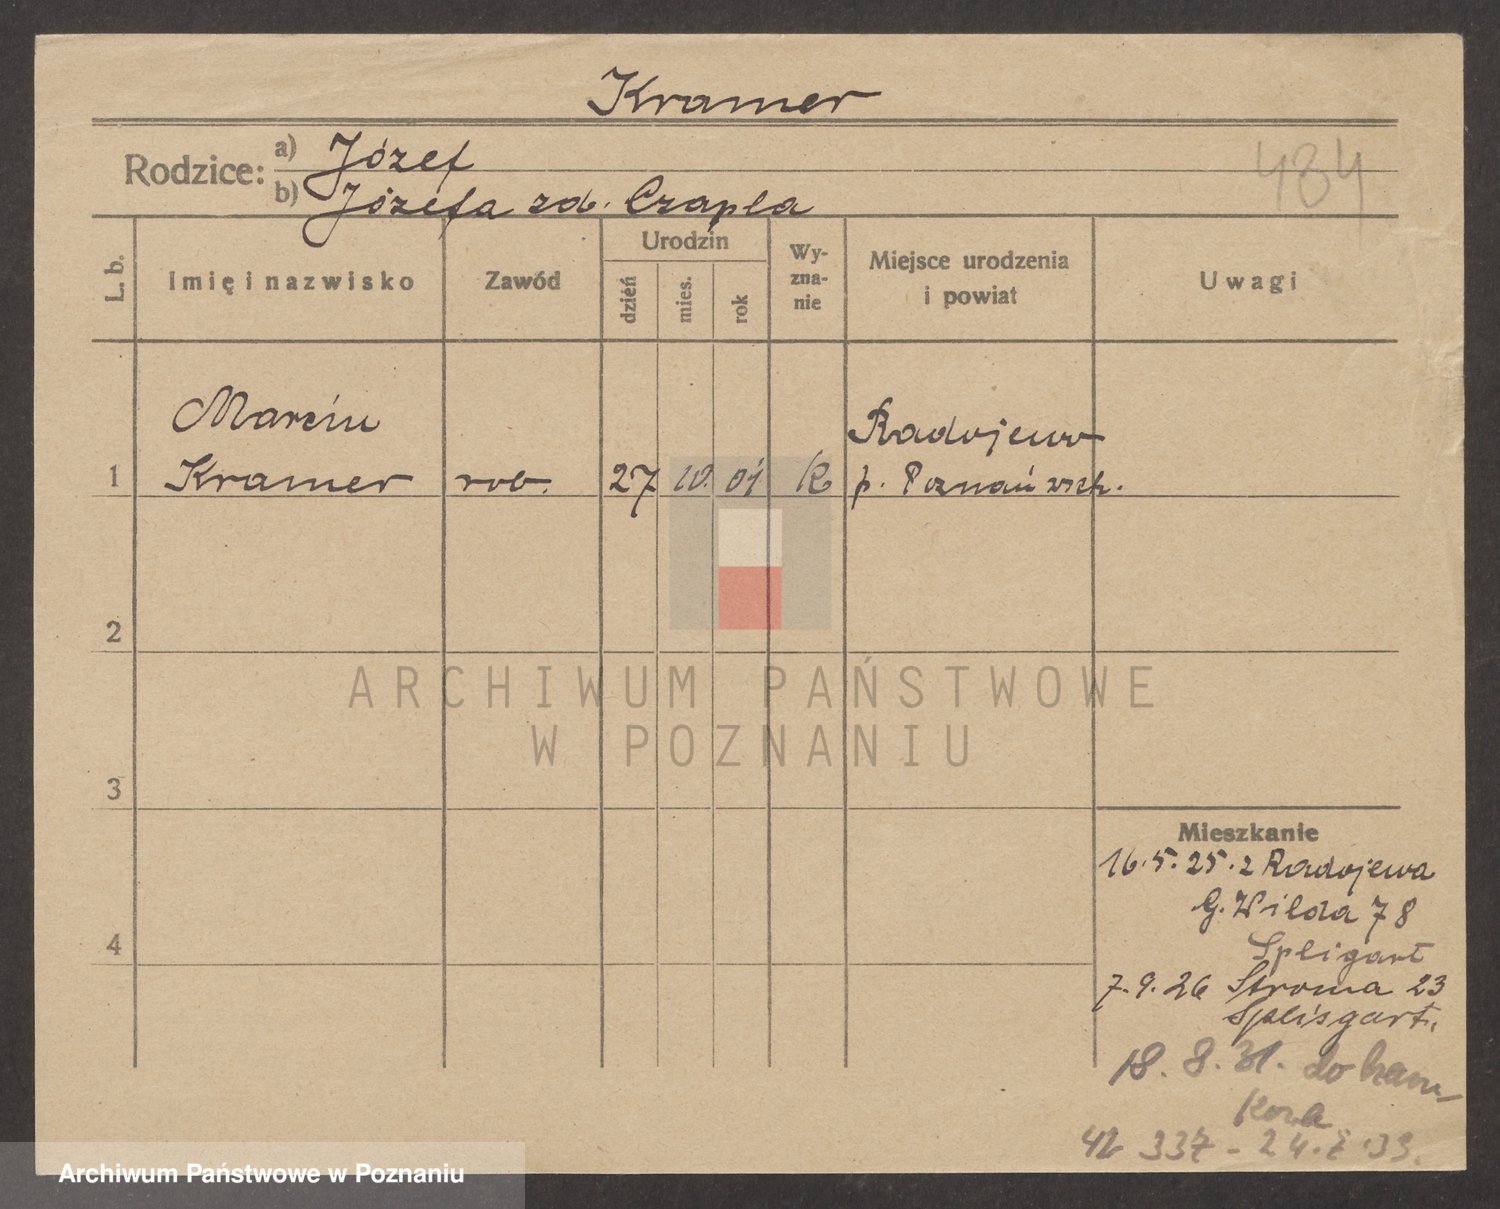 Kramer
Rodzice:
a) Józef
b) Józefa zd. Czapla
484
L. b.
Imię i nazwisko
Zawód
Urodzin
dzień
mies.
rok
Wy-
zna-
nie
Miejsce urodzenia
i powiat
Uwagi
Marcin
Radojewo
1 Kramer rob. 27 10. 01 K p. Poznań wsch.
2
ARCHIWUM PAŃSTWOWE
W POZNANIU
3
Mieszkanie
16.5.25. z Radojewa
G. Wilda 78
4
Spligart
7.9.26 Stroma 23
Splisgart.
18. 8. 31. do
337 - 24.
Archiwum Państwowe w Poznaniu